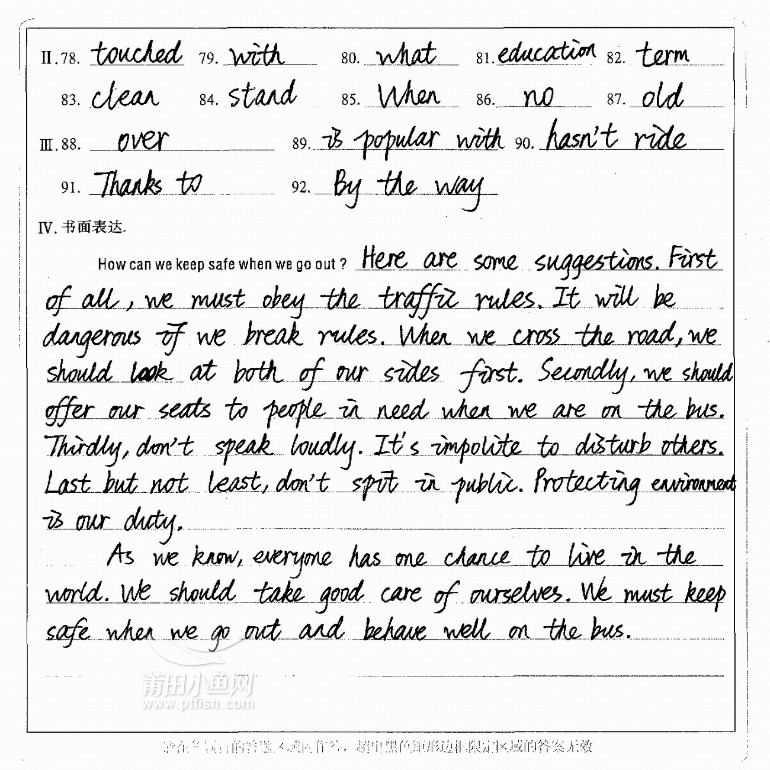 II.78. touched 79. with 80. what 81. education 82. term
83. clean 84. stand 85. When 86. no 87. old
III.88. over 89. is popular with 90. hasn't ride
91. Thanks to 92. By the way
IV.书面表达.
How can we keep safe when we go out? Here are some suggestions. First
of all, we must obey the traffic rules. It will be
dangerous if we break rules. When we cross the road, we
should look at both of our sides first. Secondly, we should
offer our seats to people in need when we are on the bus.
Thirdly, don't speak loudly. It's impolite to disturb others.
Last but not least, don't spit in public. Protecting environment
is our duty.
As we know, everyone has one chance to live in the
world. We should take good care of ourselves. We must keep
safe when we go out and behave well on the bus.
莆田小鱼网
www.ptfish.com
的答题 超出黑色矩形边框限定区域的答案无效